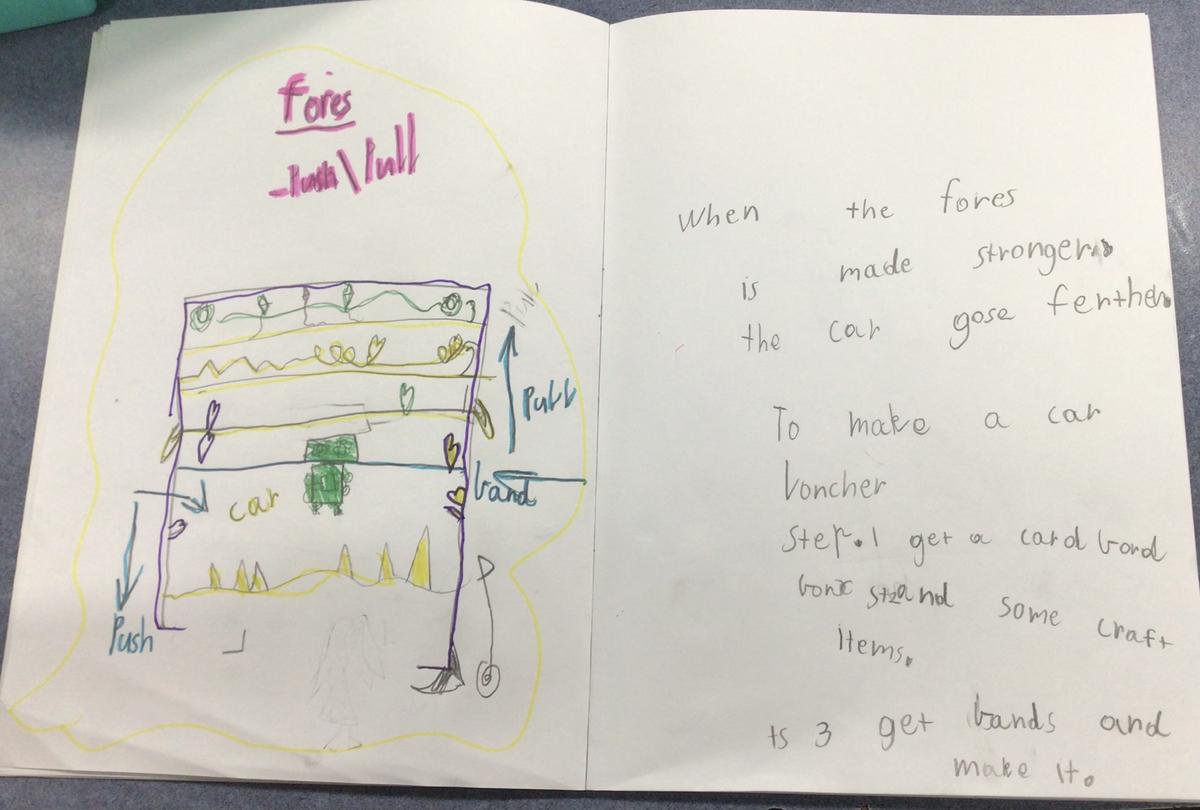 fores
-Push\Pull
Pull
band
car
Push
When the fores
is made stronger
the car gose ferther
To make a car
loncher
step.1 get a card bord
bonx and some craft
items.
ts 3 get bands and
make it.